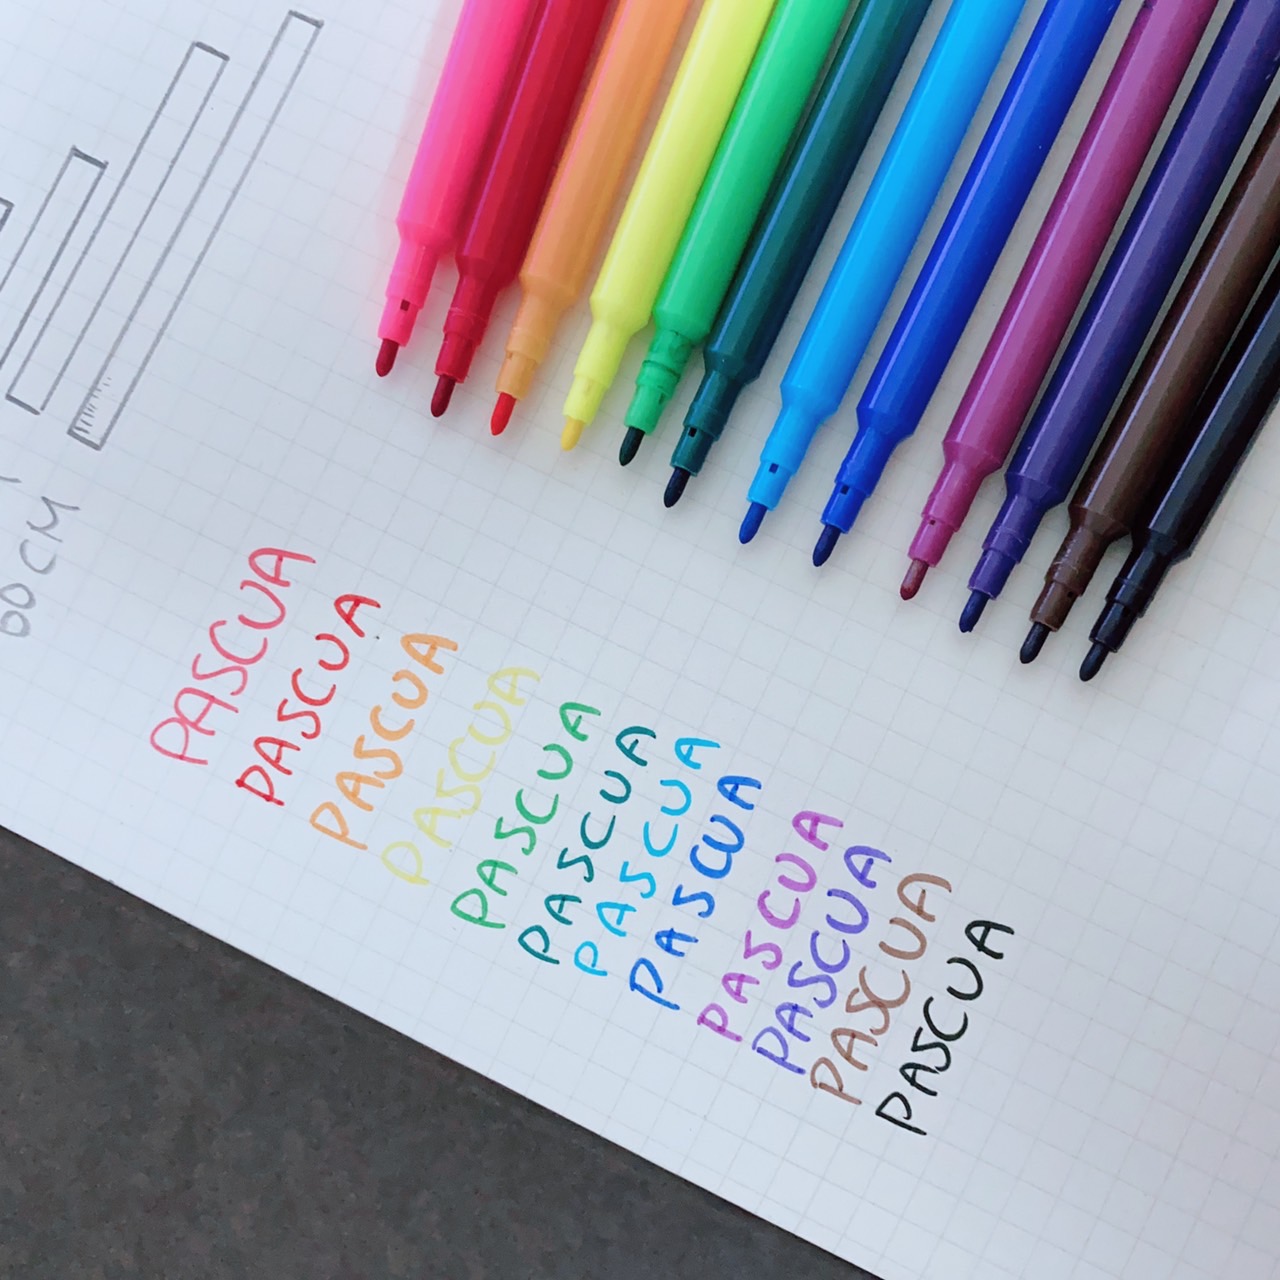 00CM
PASCUA
PASCUA
PASCUA
PASCUA
PASCUA
PASCUA
PASCUA
PASCUA
PASCUA
PASCUA
PASCUA
PASCUA